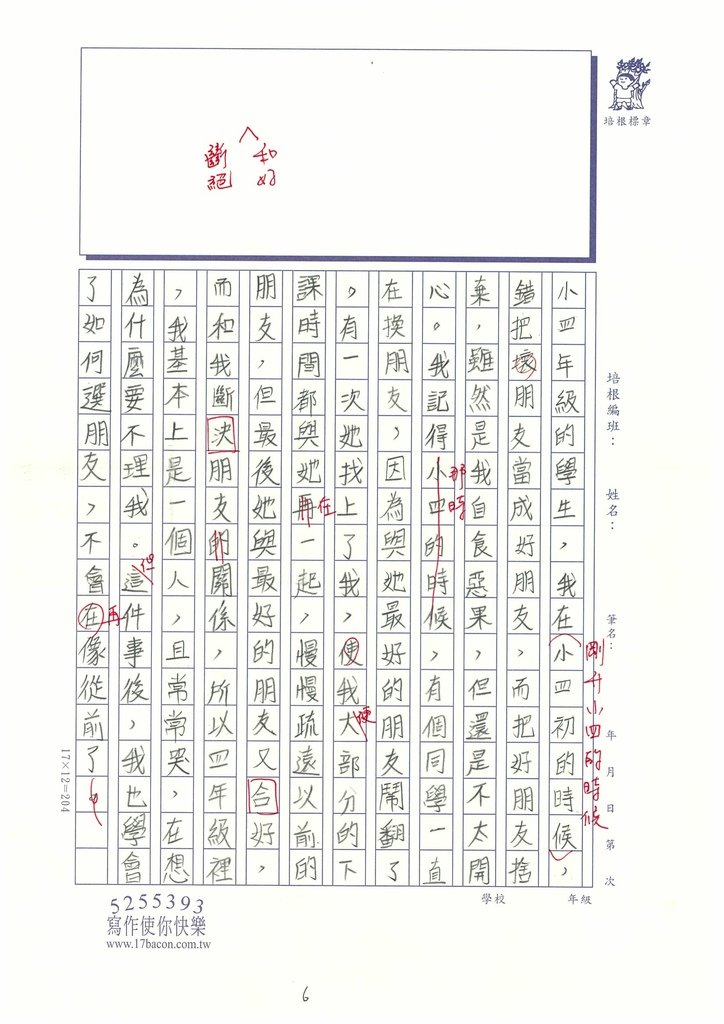 和好
斷絕
培根標章
培根編班：
姓名：
筆名：
年 月 日 第 次
小四年級的學生，我在小四初的時候，
剛升小四的時候
錯把壞朋友當成好朋友，而把好朋友捨
棄，雖然是我自食惡果，但還是不太開
心。我記得小四的時候，有個同學一直
那時
在換朋友，因為與她最好的朋友鬧翻了
。有一次她找上了我，便我大部分的下
使
課時間都與她再一起，慢慢疏遠以前的
在
朋友，但最後她與最好的朋友又合好，
而和我斷決朋友的關係，所以四年級裡
，我基本上是一個人，且常常哭，在想
為什麼要不理我。這件事後，我也學會
了如何選朋友，不會在像從前了
再
。
17×12=204
學校
年級
5255393
寫作使你快樂
www.17bacon.com.tw
6